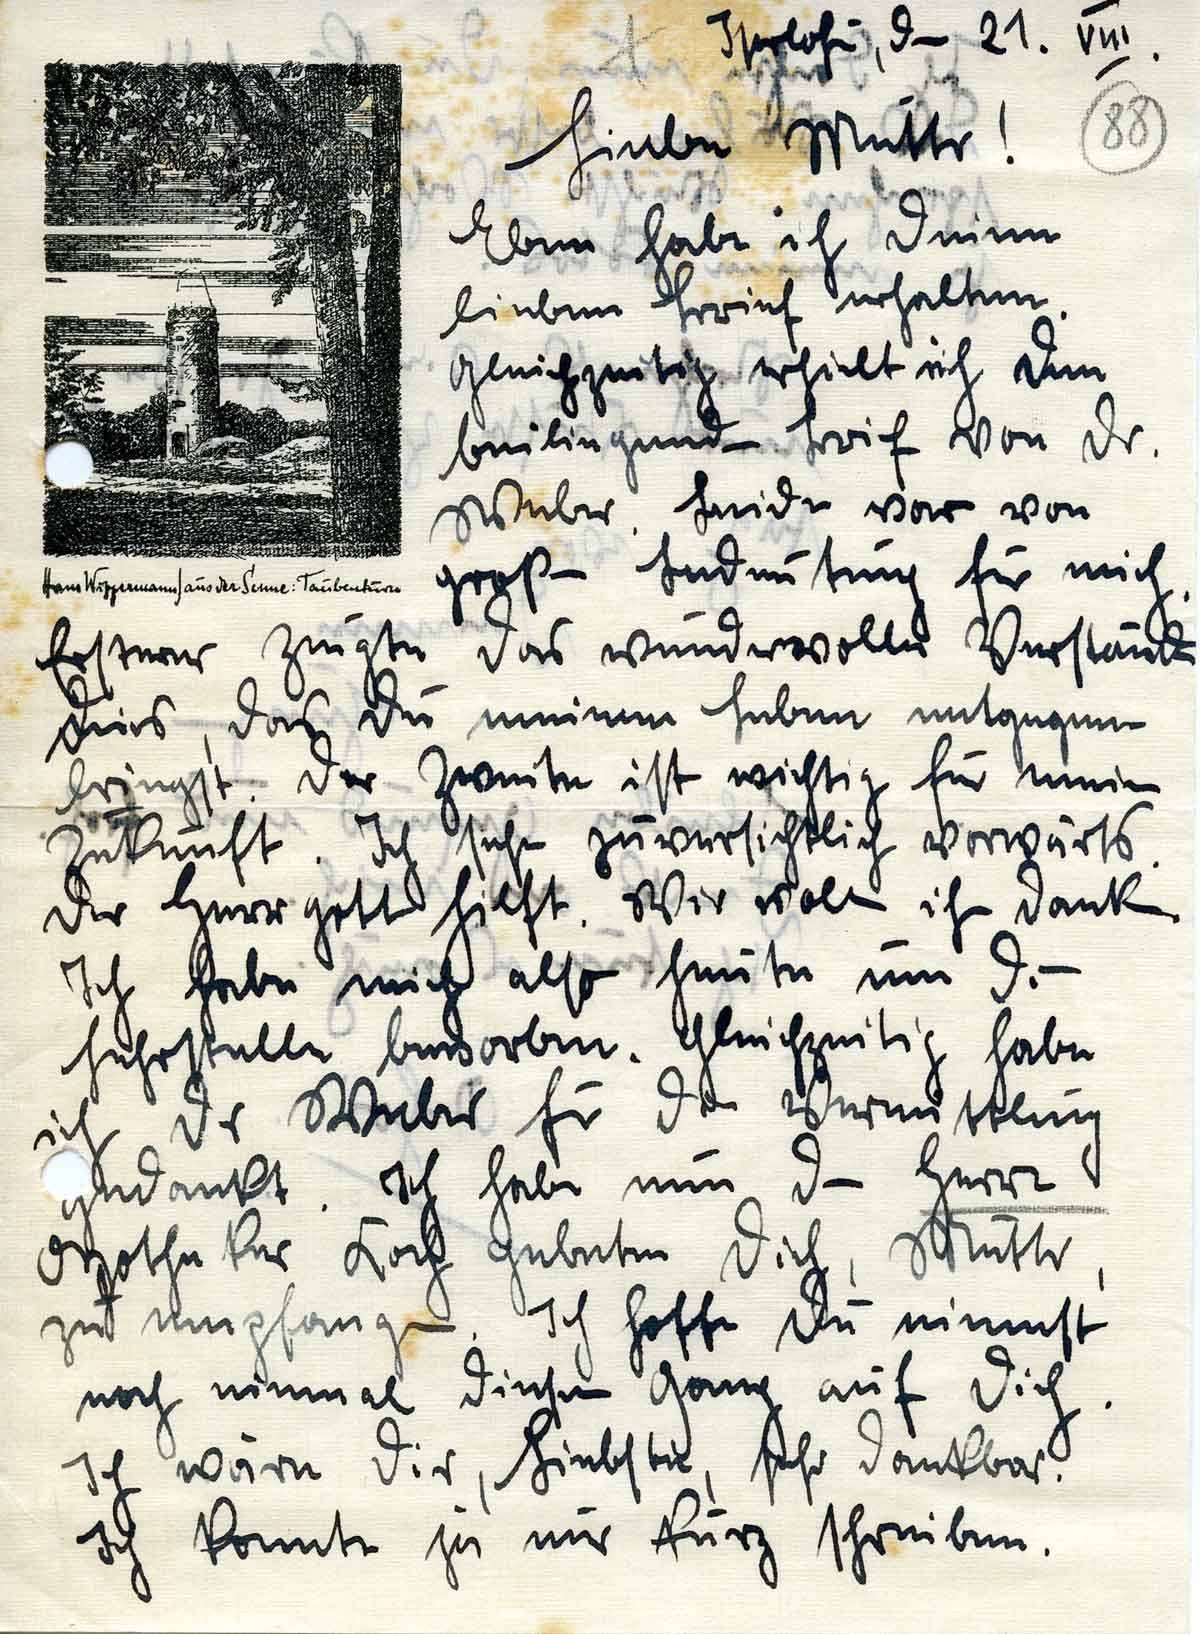 Iserlohn, den 21. VIII.
88
Liebe Mutter!
Eben habe ich Deinen
lieben Brief erhalten.
Gleichzeitig erhielt ich den
beiliegenden Brief von Dr.
Weber. Beide war von
große Bedeutung für mich.
Hans Wippermann aus der Senne: Taubenturm
Ersterer zeugte das wundervolle Verständ
nis, das Du meinem Leben entgegen
bringst. Der Zweite ist wichtig für meine
Zukunft. Ich sehe zuversichtlich vorwärts.
Der Herrgott hilft. Wir wollen ihm danken.
Ich habe mich also heute um die
Lehrstelle beworben. Gleichzeitig habe
ich Dr Weber für die Vermittlung
gedankt. Ich habe nun den Herrn
Apotheker Koch gebeten Dich, Mutter,
zu empfangen. Ich hoffe Du nimmst
noch einmal diesen Gang auf Dich.
Ich wäre Dir, Liebste, sehr dankbar.
Ich konnte ja nur kurz schreiben.